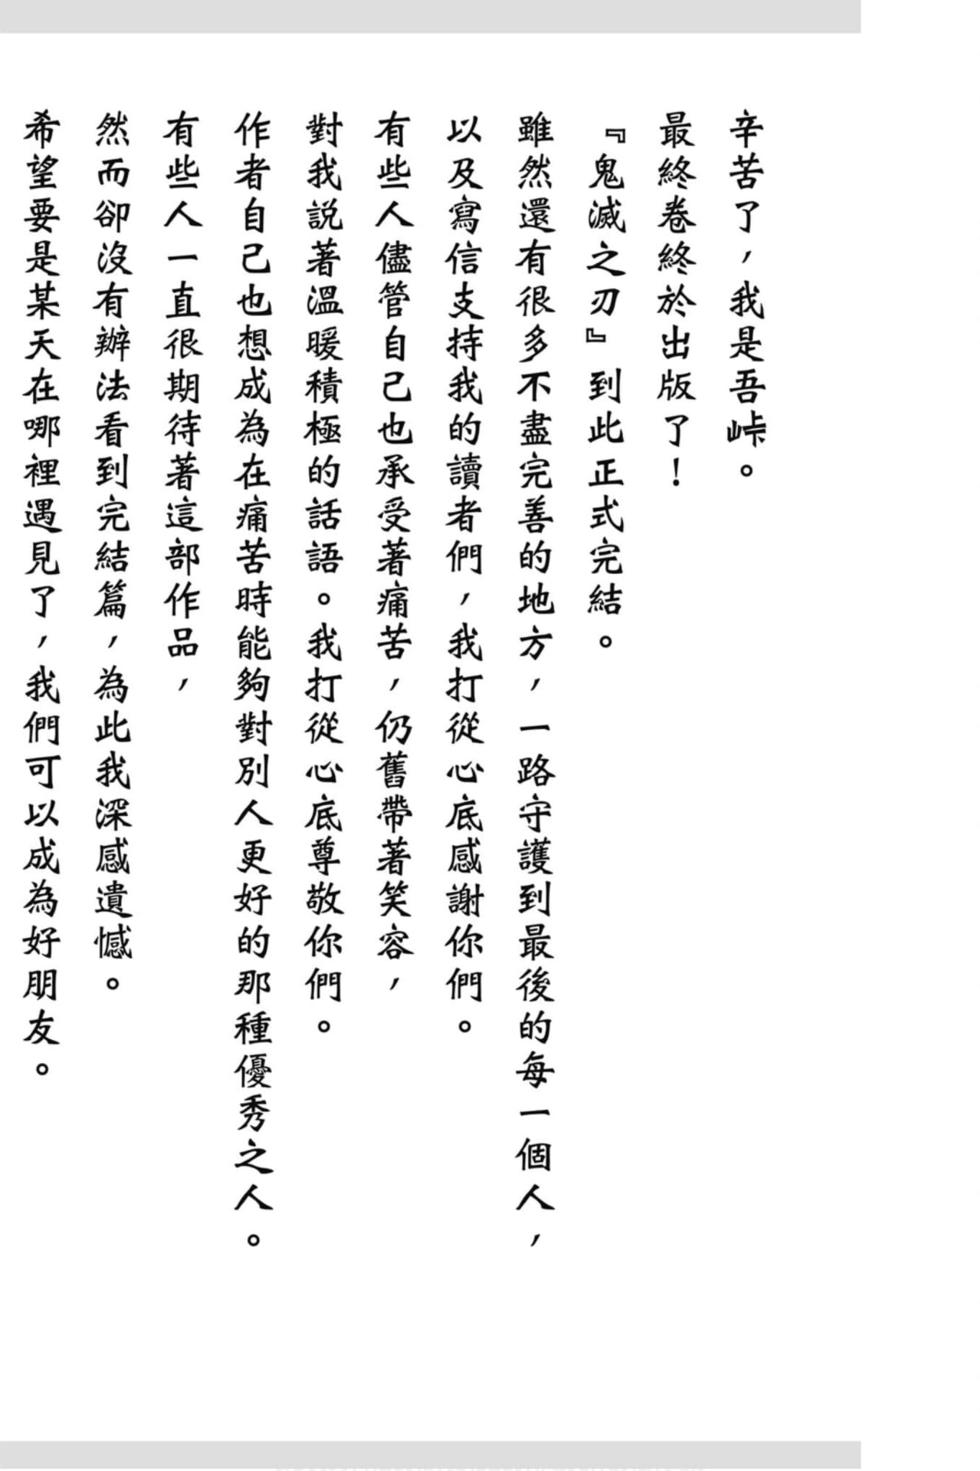 辛苦了，我是吾峠。
最終卷終於出版了！
『鬼滅之刃』到此正式完結。
雖然還有很多不盡完善的地方，一路守護到最後的每一個人，
以及寫信支持我的讀者們，我打從心底感謝你們。
有些人儘管自己也承受著痛苦，仍舊帶著笑容，
對我説著溫暖積極的話語。我打從心底尊敬你們。
作者自己也想成為在痛苦時能夠對別人更好的那種優秀之人。
有些人一直很期待著這部作品，
然而卻沒有辦法看到完結篇，為此我深感遺憾。
希望要是某天在哪裡遇見了，我們可以成為好朋友。